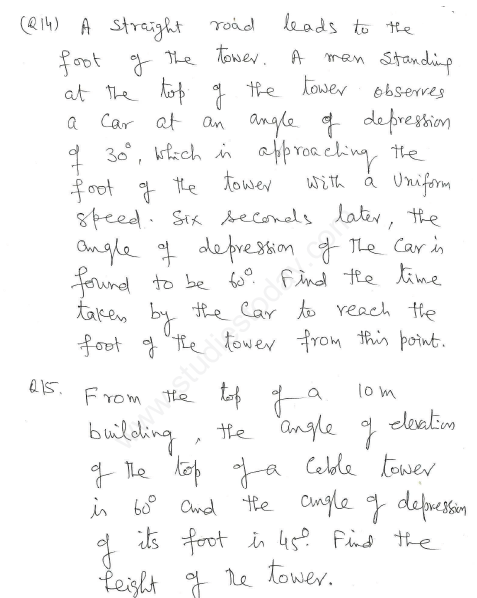 (Q14) A straight road leads to the
foot of the tower. A man standing
at the top of the tower observes
a car at an angle of depression
of 30°, which is approaching the
foot of the tower with a uniform
speed. Six seconds later, the
angle of depression of the car is
found to be 60°. Find the time
taken by the car to reach the
foot of the tower from this point.
Q15. From the top of a 10m
building, the angle of elevation
of the top of a cable tower
is 60° and the angle of depression
of its foot is 45°. Find the
height of the tower.
www.studiestoday.com